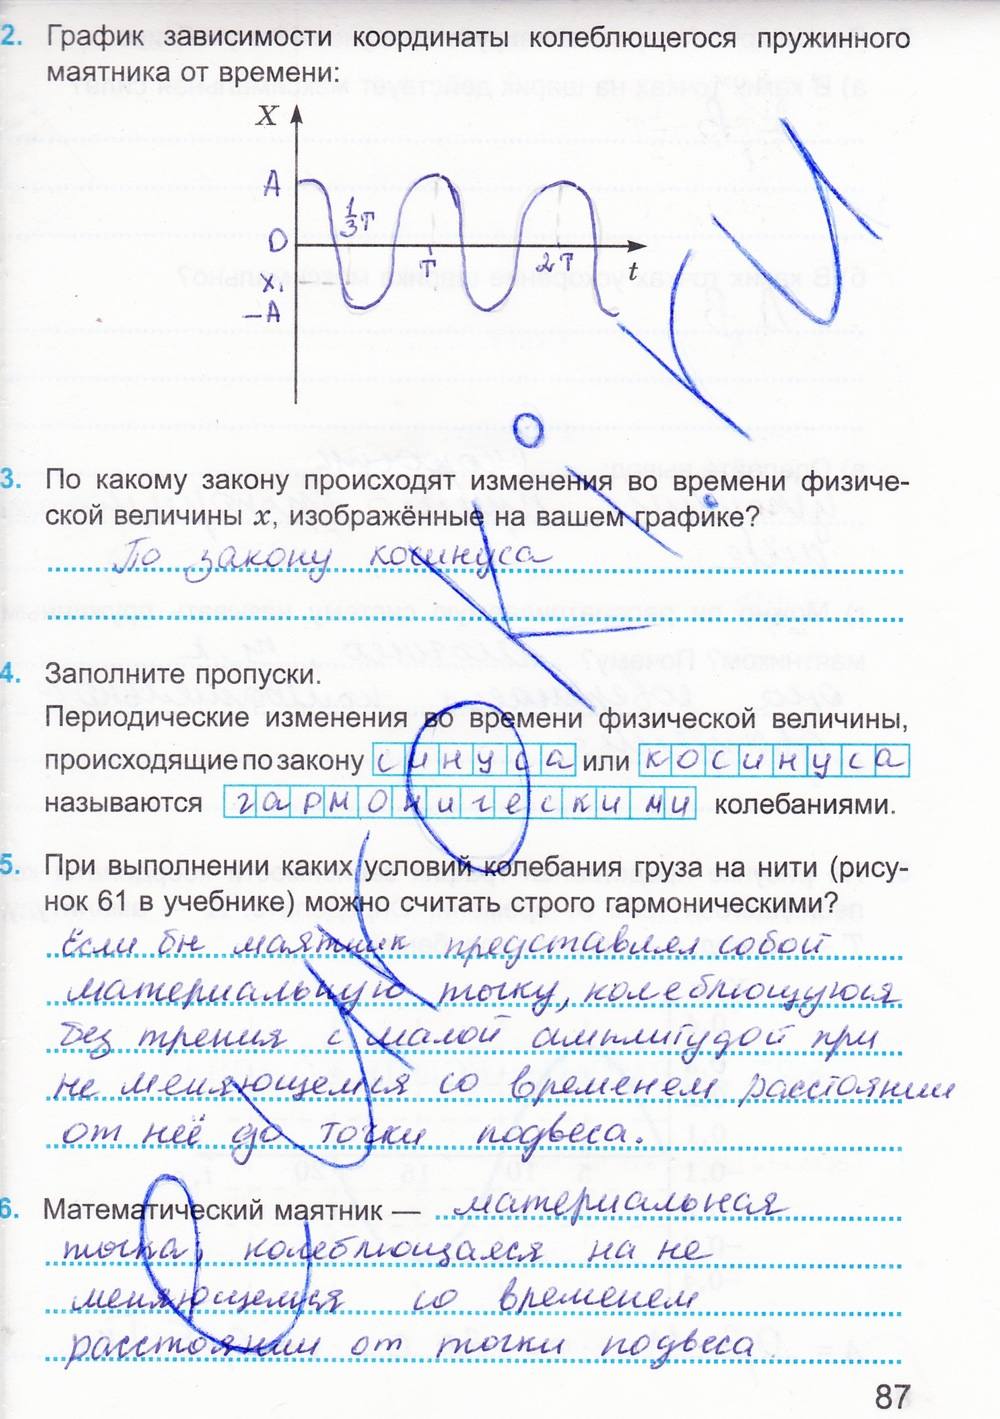 2. График зависимости координаты колеблющегося пружинного
маятника от времени:
X
A
1/3T
0
T
2T
t
x₁
–A
3. По какому закону происходят изменения во времени физиче-
ской величины x, изображённые на вашем графике?
По закону косинуса
4. Заполните пропуски.
Периодические изменения во времени физической величины,
происходящие по закону синуса или косинуса
называются гармоническими колебаниями.
5. При выполнении каких условий колебания груза на нити (рису-
нок 61 в учебнике) можно считать строго гармоническими?
Если бы маятник представлял собой
материальную точку, колеблющуюся
без трения с малой амплитудой при
не меняющемся со временем расстоянии
от неё до точки подвеса.
6. Математический маятник — материальная
точка, колеблющаяся на не
меняющемся со временем
расстоянии от точки подвеса
87